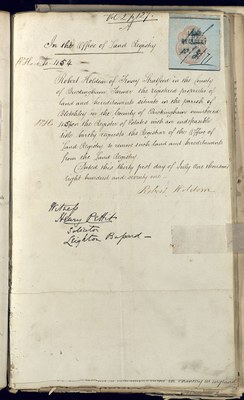 In the Office of Land Registry
1154
Robert Holdom of Stony Stratford in the County
of Buckingham Farmer the registered proprietor of
land and hereditaments situate in the parish of
in the County of Buckingham numbered
1154 on the Register of Estates with an indefeasible
title hereby requests the Registrar of the Office of
Land Registry to remove such land and hereditaments
from the Land Registry
Dated this thirty first day of July One thousand
eight hundred and seventy one
Robert Holdom
Witness
Henry Pettit
Solicitor
Leighton Buzzard